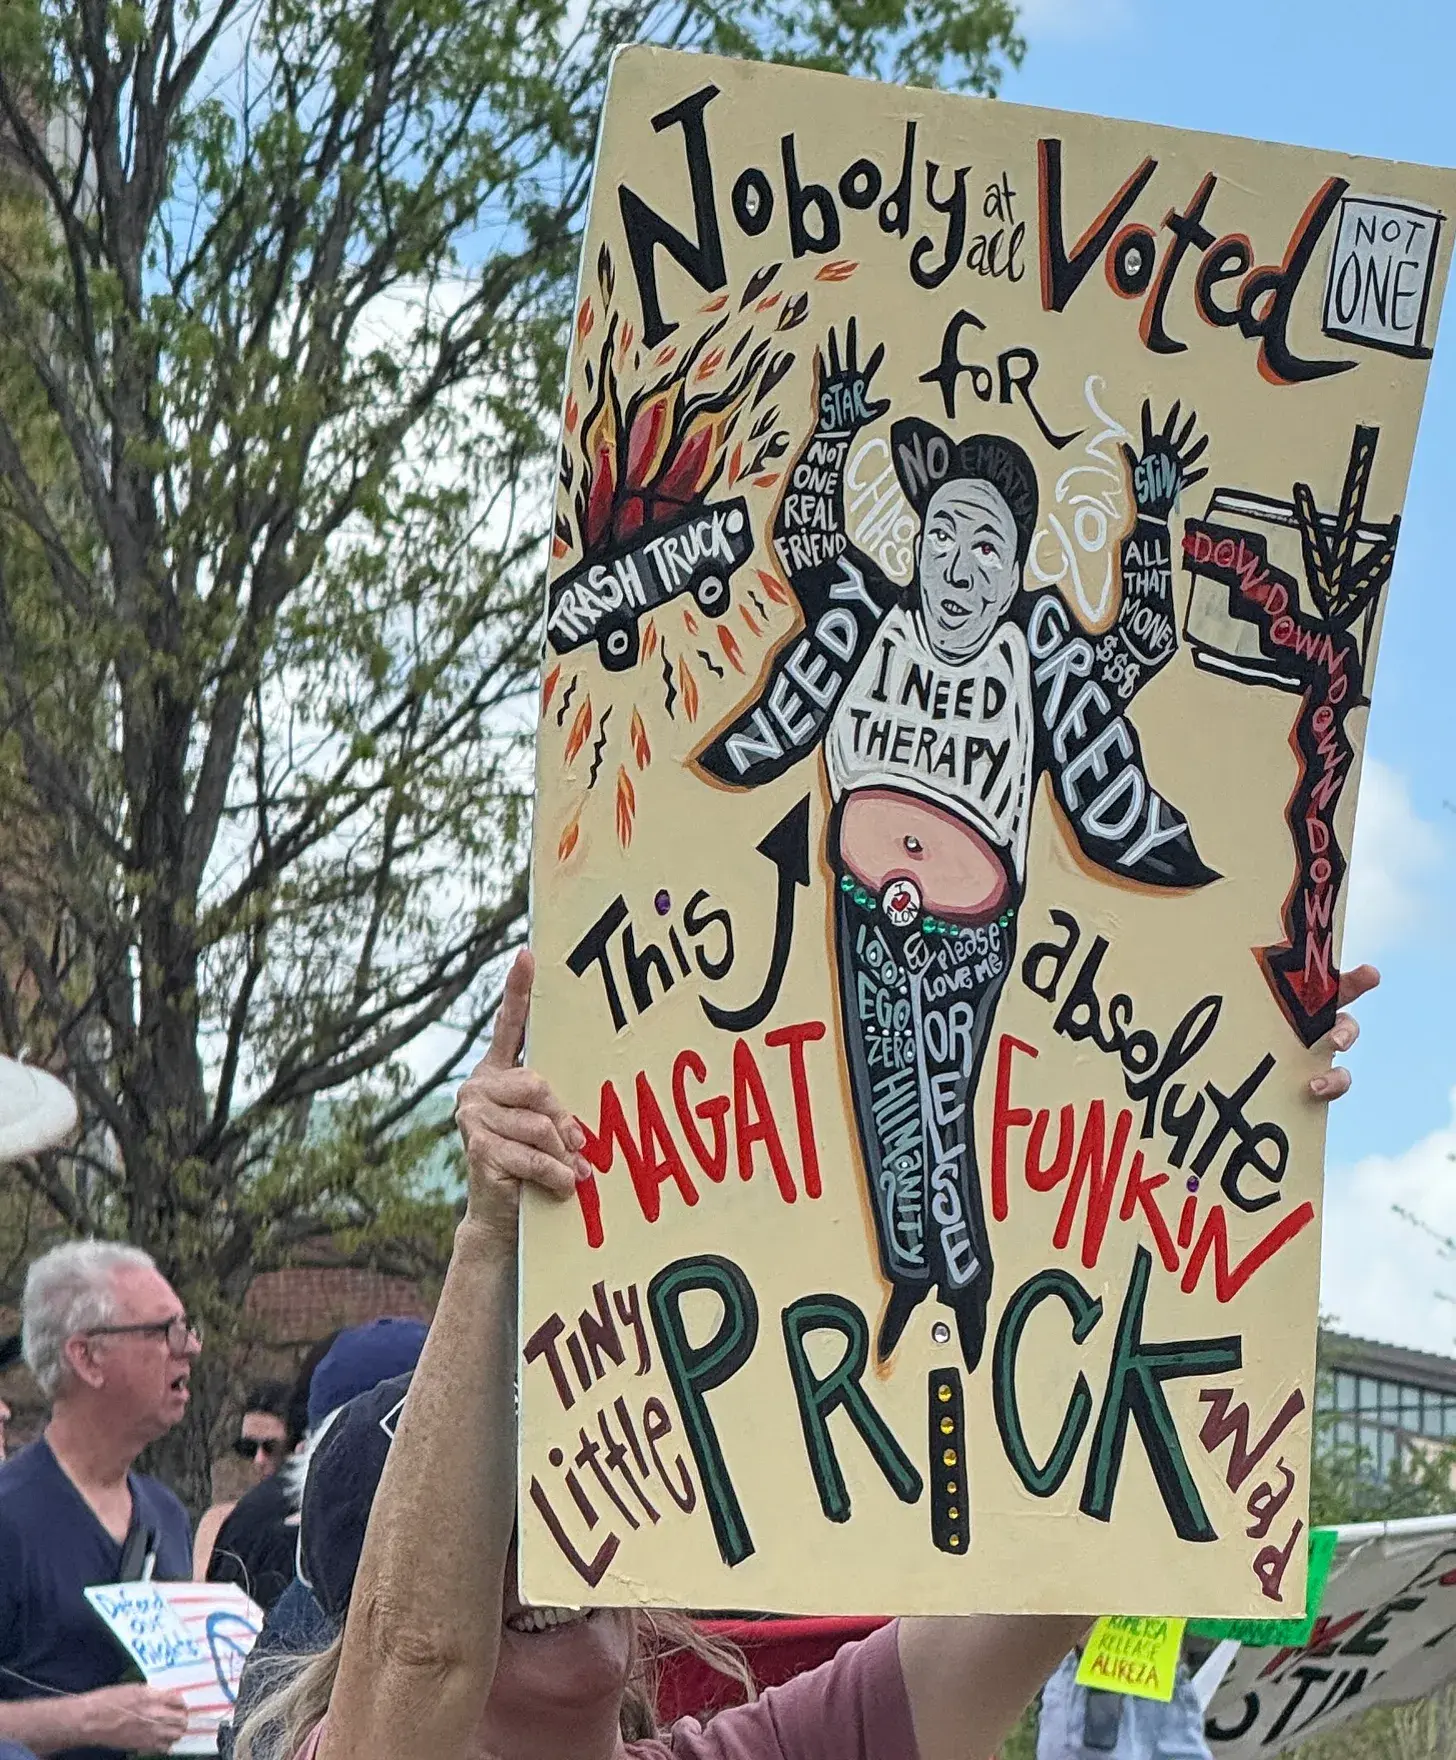 Nobody at all Voted
NOT
ONE
for
NO EMPATHY
STAR
NOT
ONE
REAL
FRIEND
CHAOS
STINK
ALL
THAT
MONEY
$$$
TRASH TRUCK
DOWN DOWN DOWN DOWN DOWN
NEEDY
GREEDY
I NEED
THERAPY
This
absolute
I ♥
ELON
100%
EGO
ZERO
HUMANITY
please
LOVE ME
OR ELSE
MAGAT
FUNKiN
TiNy
Little
PRiCK
Wad
Defend
our
Rights
RELEASE
ALIREZA